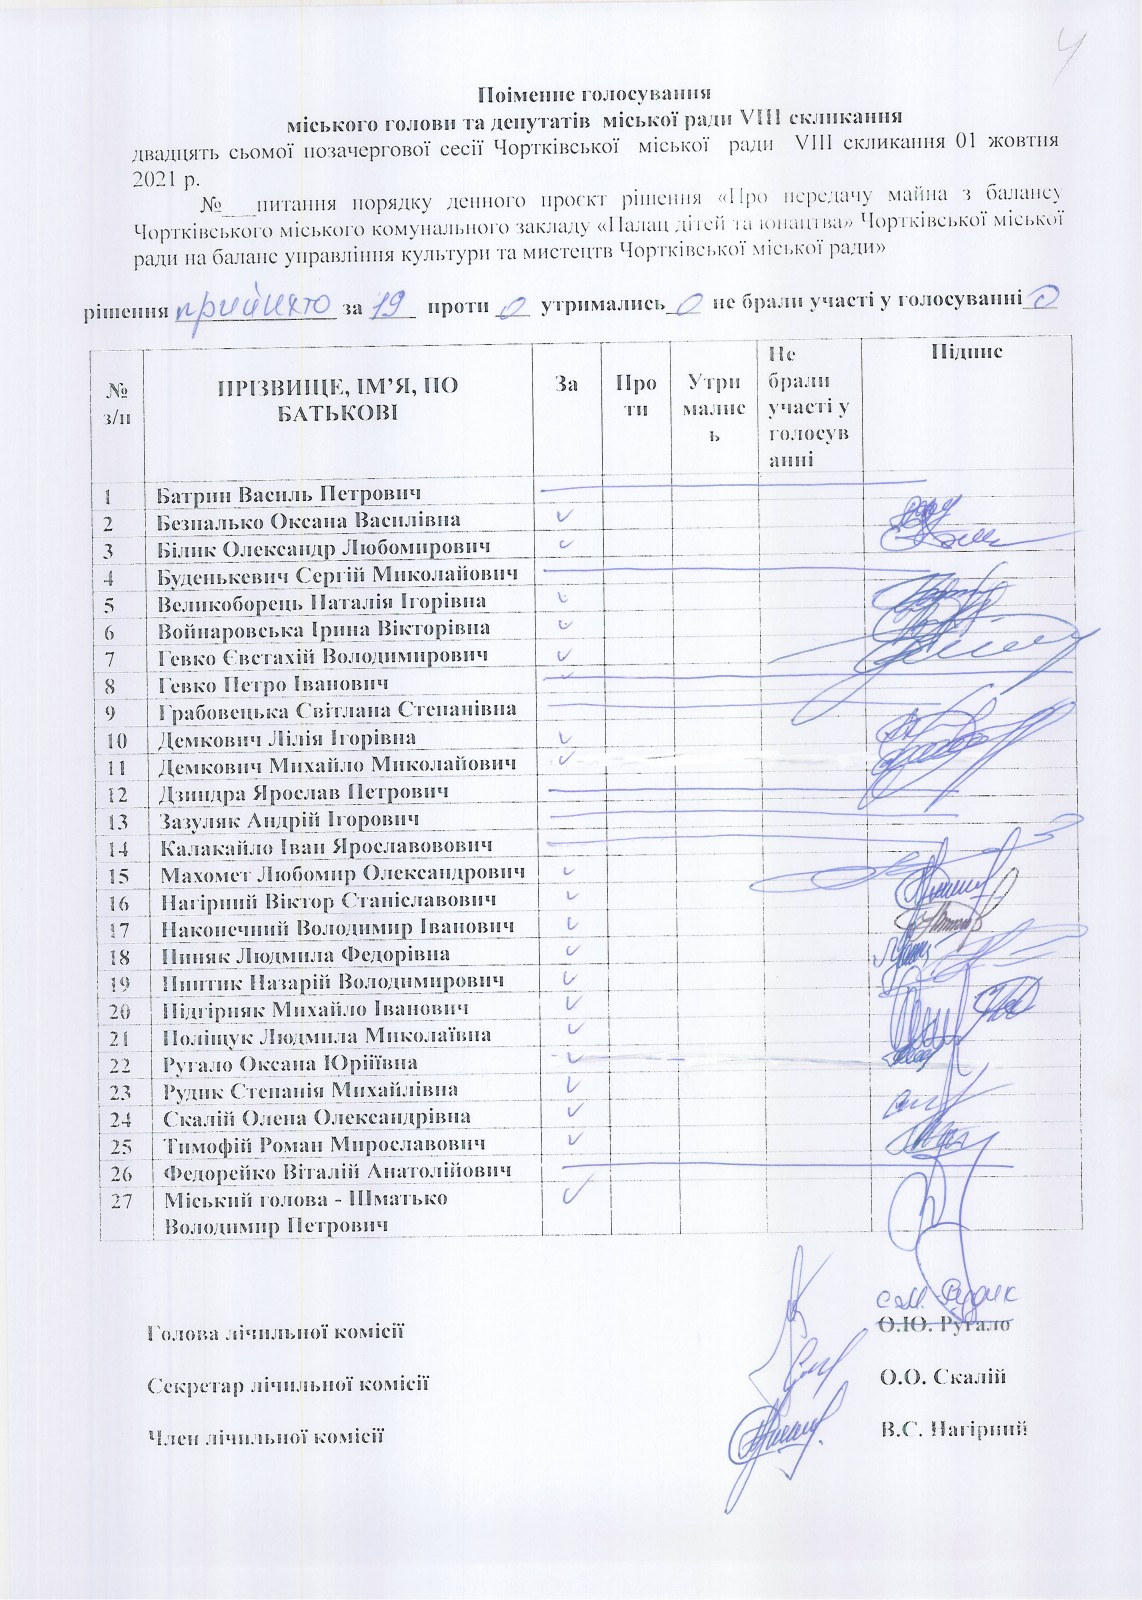 Ч
Поіменне голосування
міського голови та депутатів міської ради VIII скликання
двадцять сьомої позачергової сесії Чортківської міської ради VIII скликання 01 жовтня
2021 р.
№___питання порядку денного проєкт рішення «Про передачу майна з балансу
Чортківського міського комунального закладу «Палац дітей та юнацтва» Чортківської міської
ради на баланс управління культури та мистецтв Чортківської міської ради»
рішення прийнято за 19 проти 0 утримались 0 не брали участі у голосуванні 0
№ з/п ПРІЗВИЩЕ, ІМ’Я, ПО БАТЬКОВІ За Про ти Утри малис ь Не брали участі у голосув анні Підпис
1 Батрин Василь Петрович
2 Безпалько Оксана Василівна
3 Білик Олександр Любомирович
4 Буденькевич Сергій Миколайович
5 Великоборець Наталія Ігорівна
6 Войнаровська Ірина Вікторівна
7 Гевко Євстахій Володимирович
8 Гевко Петро Іванович
9 Грабовецька Світлана Степанівна
10 Демкович Лілія Ігорівна
11 Демкович Михайло Миколайович
12 Дзиндра Ярослав Петрович
13 Зазуляк Андрій Ігорович
14 Калакайло Іван Ярославовович
15 Махомет Любомир Олександрович
16 Нагірний Віктор Станіславович
17 Наконечний Володимир Іванович
18 Пиняк Людмила Федорівна
19 Пиптик Назарій Володимирович
20 Підгірняк Михайло Іванович
21 Поліщук Людмила Миколаївна
22 Ругало Оксана Юріїівна
23 Рудик Степанія Михайлівна
24 Скалій Олена Олександрівна
25 Тимофій Роман Мирославович
26 Федорейко Віталій Анатолійович
27 Міський голова - Шматько
Володимир Петрович
С.М. Рудик
Голова лічильної комісії О.Ю. Ругало
Секретар лічильної комісії О.О. Скалій
Член лічильної комісії В.С. Нагірний